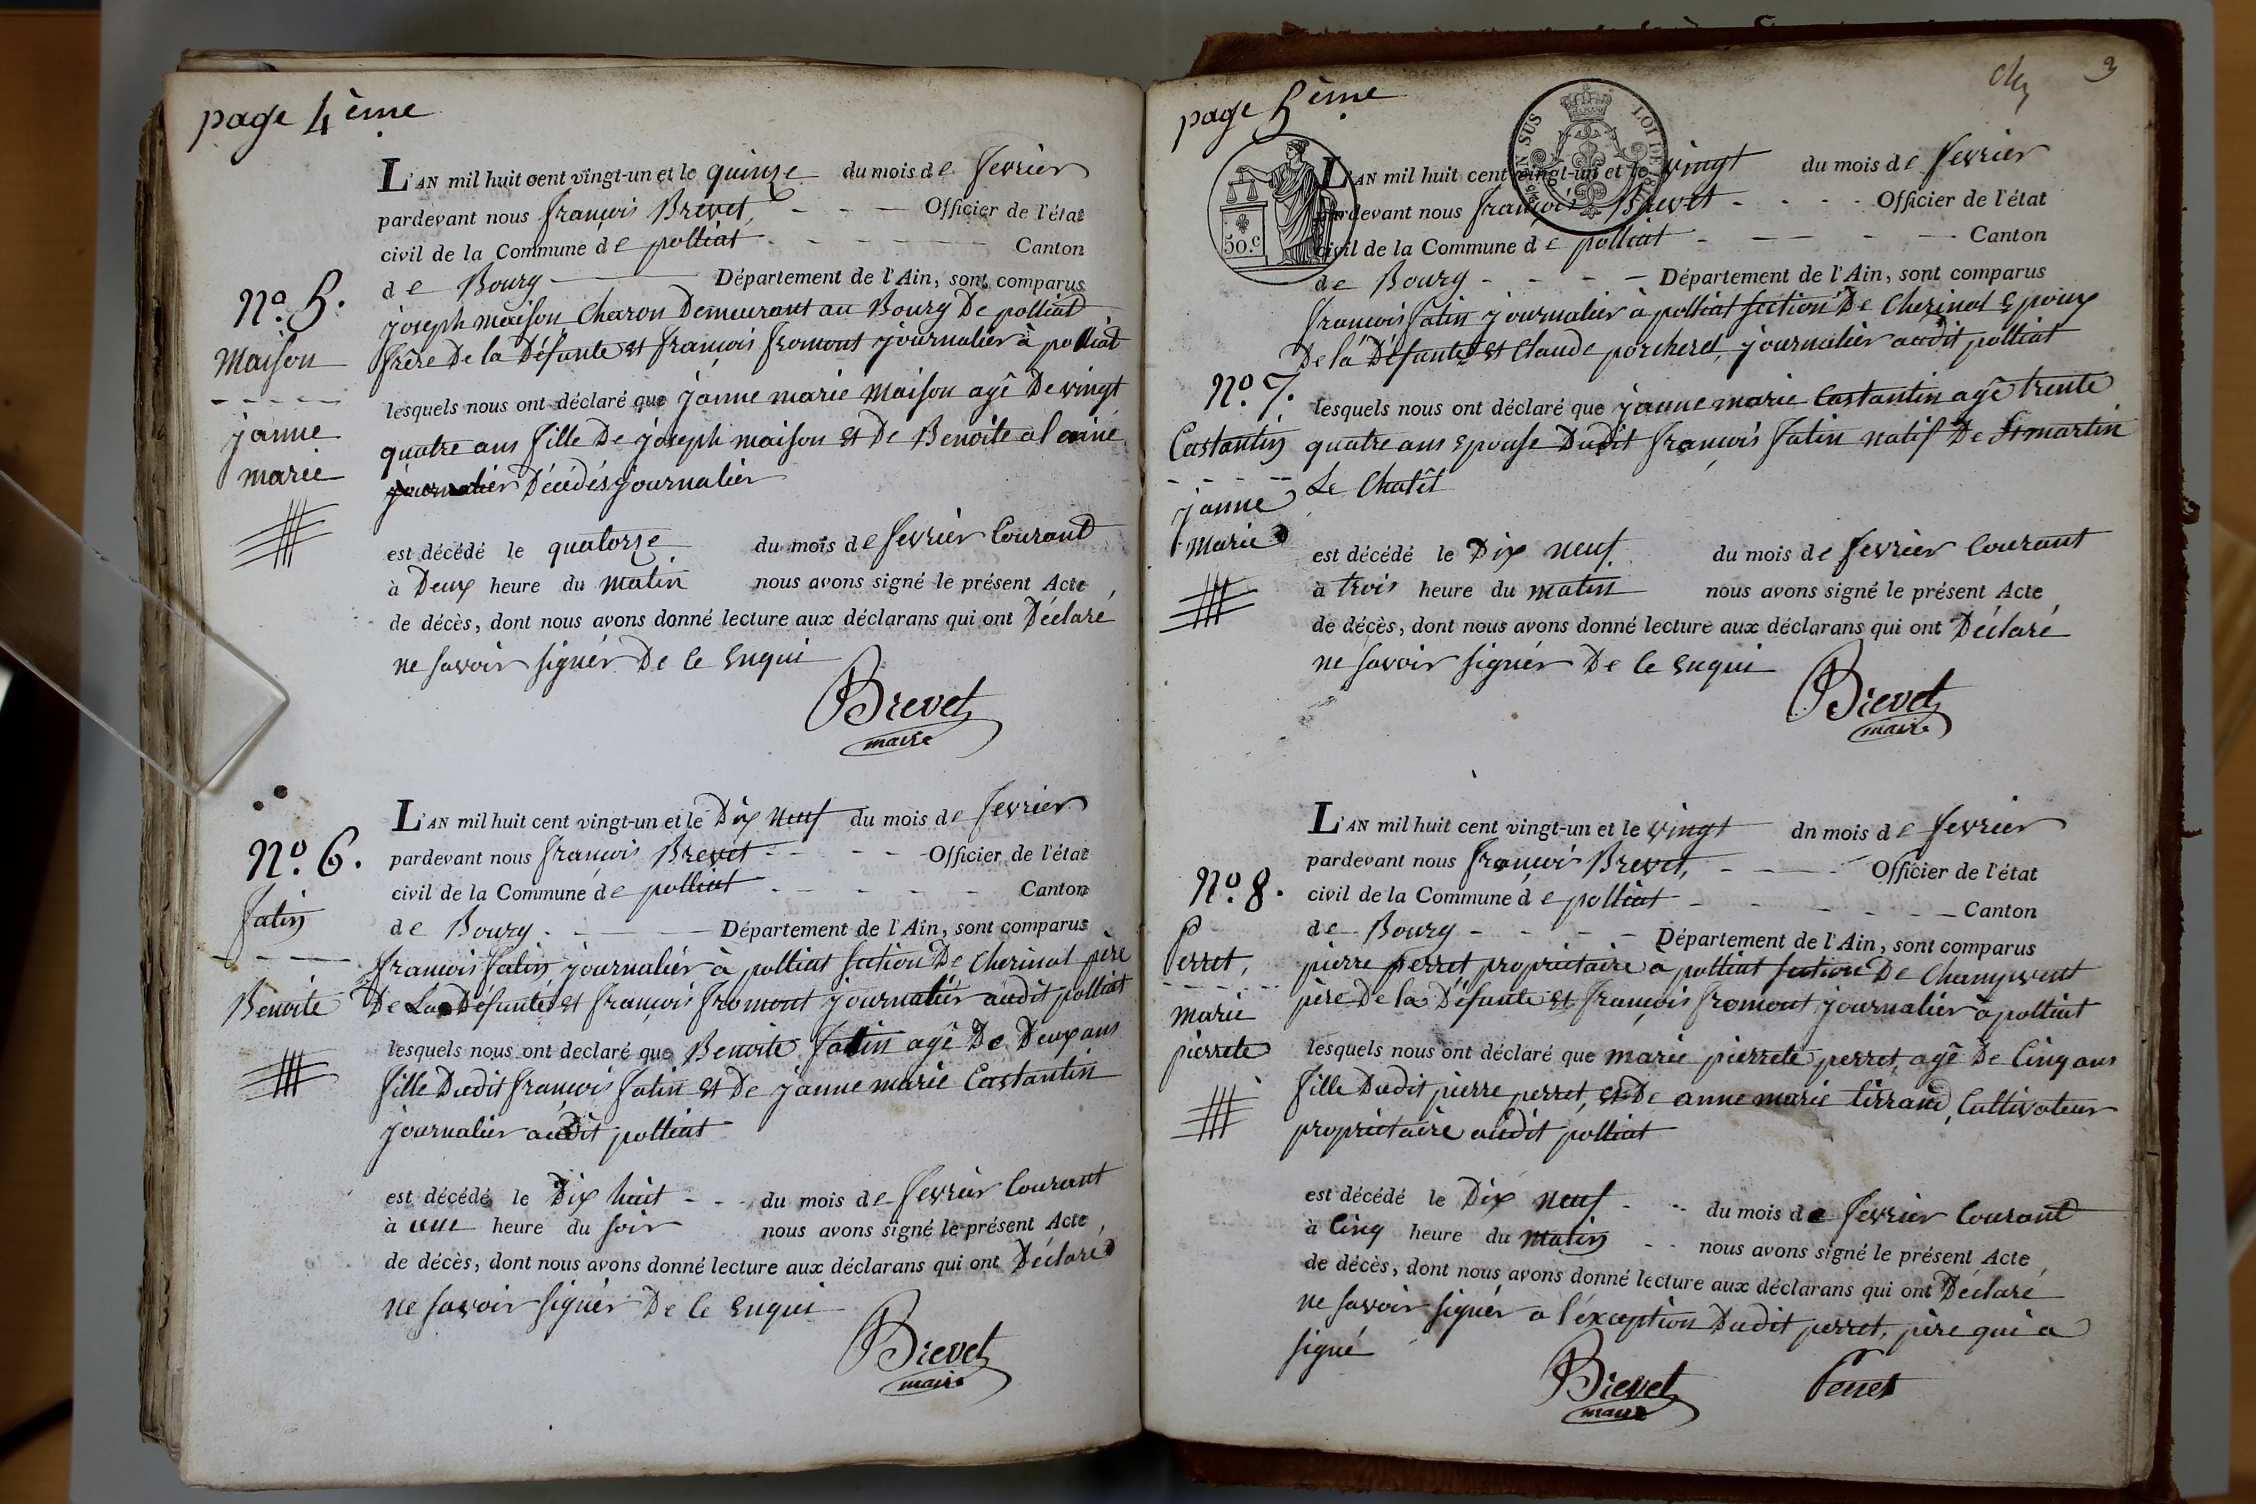 page 4ème
L'AN mil huit cent vingt-un et le quinze du mois de fevrier
pardevant nous françois Brevet, Officier de l'état
civil de la Commune de polliat Canton
de Bourg Département de l'Ain, sont comparus
joseph maison Charon Demeurant au Bourg De polliat
frère De la Défunte et françois fromont journalier à polliat
lesquels nous ont déclaré que janne marie maison agé De vingt
quatre ans fille De joseph maison et De Benoite
journalier Décédés journalier
est décédé le quatorze du mois de fevrier Courant
à Deux heure du matin nous avons signé le présent Acte
de décès, dont nous avons donné lecture aux déclarans qui ont Déclaré
ne savoir signér De Ce Enqui
Brevet
maire
No. 5.
Maison
janne
marie
L'AN mil huit cent vingt-un et le Dix neuf du mois de fevrier
pardevant nous françois Brevet Officier de l'état
civil de la Commune de polliat Canton
de Bourg Département de l'Ain, sont comparus
françois fatin journalier à polliat section De Cherinal père
De La Défunte et françois fromont journalier audit polliat
lesquels nous ont declaré que Benoite fatin agé De Deux ans
fille Dudit françois fatin et De janne marie Castantin
journalier audit polliat
est décédé le Dix huit du mois de fevrier Courant
à une heure du soir nous avons signé le présent Acte,
de décès, dont nous avons donné lecture aux déclarans qui ont Déclaré
ne savoir signér De Ce Enqui
Brevet
maire
No. 6.
fatin
Benoite
page 5ème
3
LOI DE
50.c
L'AN mil huit cent vingt-un et le vingt du mois de fevrier
pardevant nous françois Brevet Officier de l'état
civil de la Commune de polliat Canton
de Bourg Département de l'Ain, sont comparus
françois fatin journalier à polliat section De Cherinal Epoux
De la Défunte et Claude porcheret, journalier audit polliat
lesquels nous ont déclaré que janne marie Castantin agé trente
quatre ans Epouse Dudit françois fatin natif De St martin
Le Chatêl
est décédé le Dix neuf du mois de fevrier Courant
à trois heure du matin nous avons signé le présent Acte
de décès, dont nous avons donné lecture aux déclarans qui ont Déclaré
ne savoir signér De Ce Enqui
Brevet
maire
No. 7.
Castantin
janne
Marie
L'AN mil huit cent vingt-un et le vingt dn mois de fevrier
pardevant nous françois Brevet, Officier de l'état
civil de la Commune de polliat Canton
de Bourg Département de l'Ain, sont comparus
pierre perret propriétaire à polliat section De Champvent
père De la Défunte et françois fromont journalier à polliat
lesquels nous ont déclaré que marie pierrete perret, agé De Cinq ans
fille Dudit pierre perret, et De anne marie tirrand, Cultivateur
propriétaire audit polliat
est décédé le Dix neuf du mois de fevrier Courant
à Cinq heure du matin nous avons signé le présent Acte,
de décès, dont nous avons donné lecture aux déclarans qui ont Déclaré
ne savoir signér a l'éxception Dudit perret, père qui a
signé
Brevet Perret
maire
No. 8.
Perret,
marie
pierrete